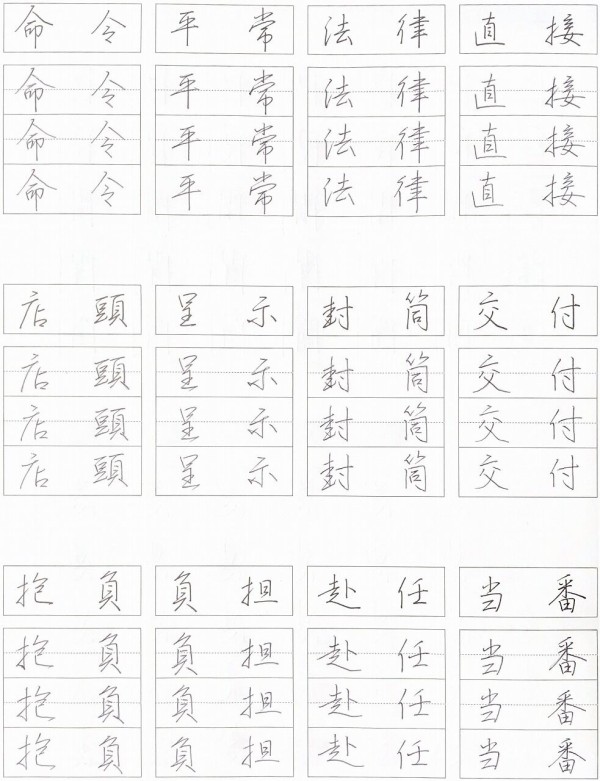 命令 平常 法律 直接
命令 平常 法律 直接
命令 平常 法律 直接
命令 平常 法律 直接
店頭 呈示 封筒 交付
店頭 呈示 封筒 交付
店頭 呈示 封筒 交付
店頭 呈示 封筒 交付
抱負 負担 赴任 当番
抱負 負担 赴任 当番
抱負 負担 赴任 当番
抱負 負担 赴任 当番